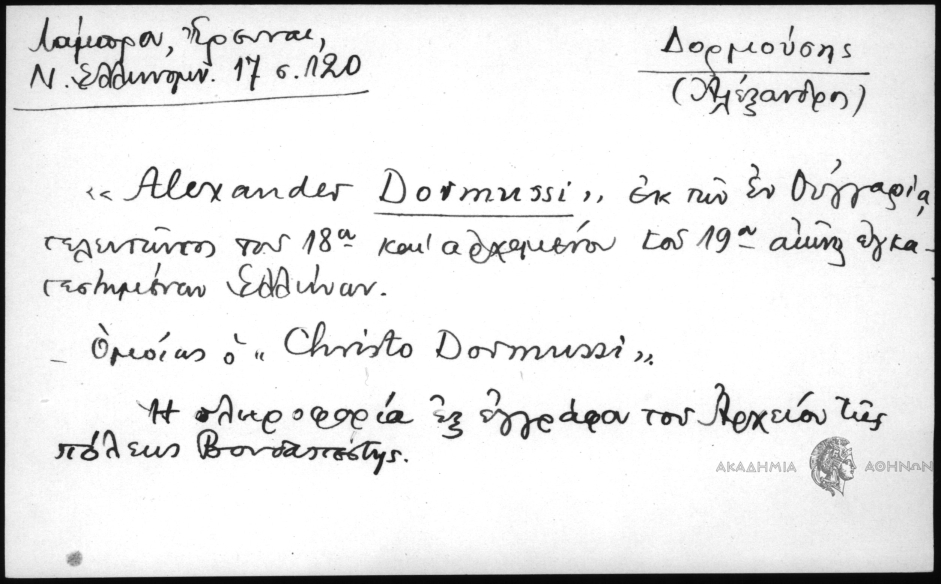 Λάμπρου, Ἔρευναι,
Ν. Ἑλληνομν. 17 σ. 120
Δορμούσης
(Ἀλέξανδρος)
« Alexander Dormussi », ἐκ τῶν ἐν Οὑγγαρίᾳ,
τελευτῶντος τοῦ 18ου καὶ ἀρχομένου τοῦ 19ου αἰῶνος ἐγκα-
τεστημένων Ἑλλήνων.
– Ὁμοίως ὁ « Christo Dormussi ».
Ἡ πληροφορία ἐξ ἐγγράφου τοῦ Ἀρχείου τῆς
πόλεως Βουδαπέστης.
ΑΚΑΔΗΜΙΑ ΑΘΗΝΩΝ